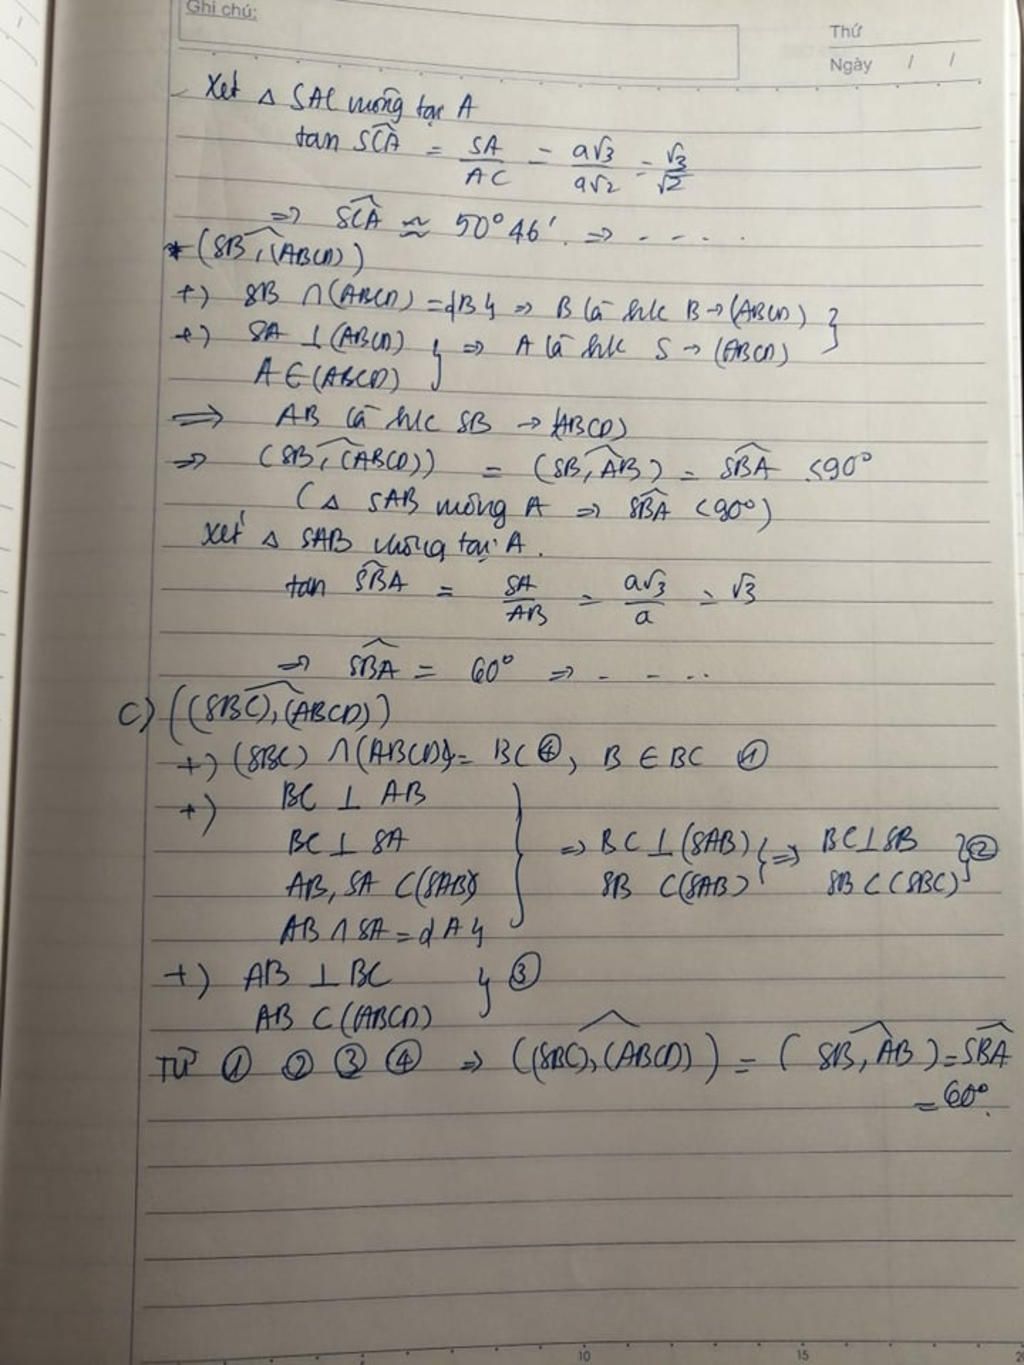 Ghi chú:
Thứ
Ngày / /
Xét △ SAC vuông tại A
tan SĈA = SA/AC = a√3/a√2 = √3/√2
=> SĈA ≈ 50°46'. => - - - .
* (SB, (ABCD))
+) SB ∩ (ABCD) = {B} => B là hc B → (ABCD) }
+) SA ⊥ (ABCD) } => A là hc S → (ABCD)
A ∈ (ABCD)
=> AB là hc SB → (ABCD)
=> (SB, (ABCD)) = (SB, AB) = SB̂A < 90°
(△ SAB vuông A => SB̂A < 90°)
Xét △ SAB vuông tại A.
tan SB̂A = SA/AB = a√3/a = √3
=> SB̂A = 60° => - - ..
c) ((SBC), (ABCD))
+) (SBC) ∩ (ABCD) = BC ④, B ∈ BC ①
+) BC ⊥ AB
BC ⊥ SA => BC ⊥ (SAB) } => BC ⊥ SB } ②
AB, SA ⊂ (SAB) SB ⊂ (SAB) SB ⊂ (SBC)
AB ∩ SA = {A}
+) AB ⊥ BC } ③
AB ⊂ (ABCD)
Từ ① ② ③ ④ => ((SBC), (ABCD)) = (SB, AB) = SB̂A
= 60°.
10 15